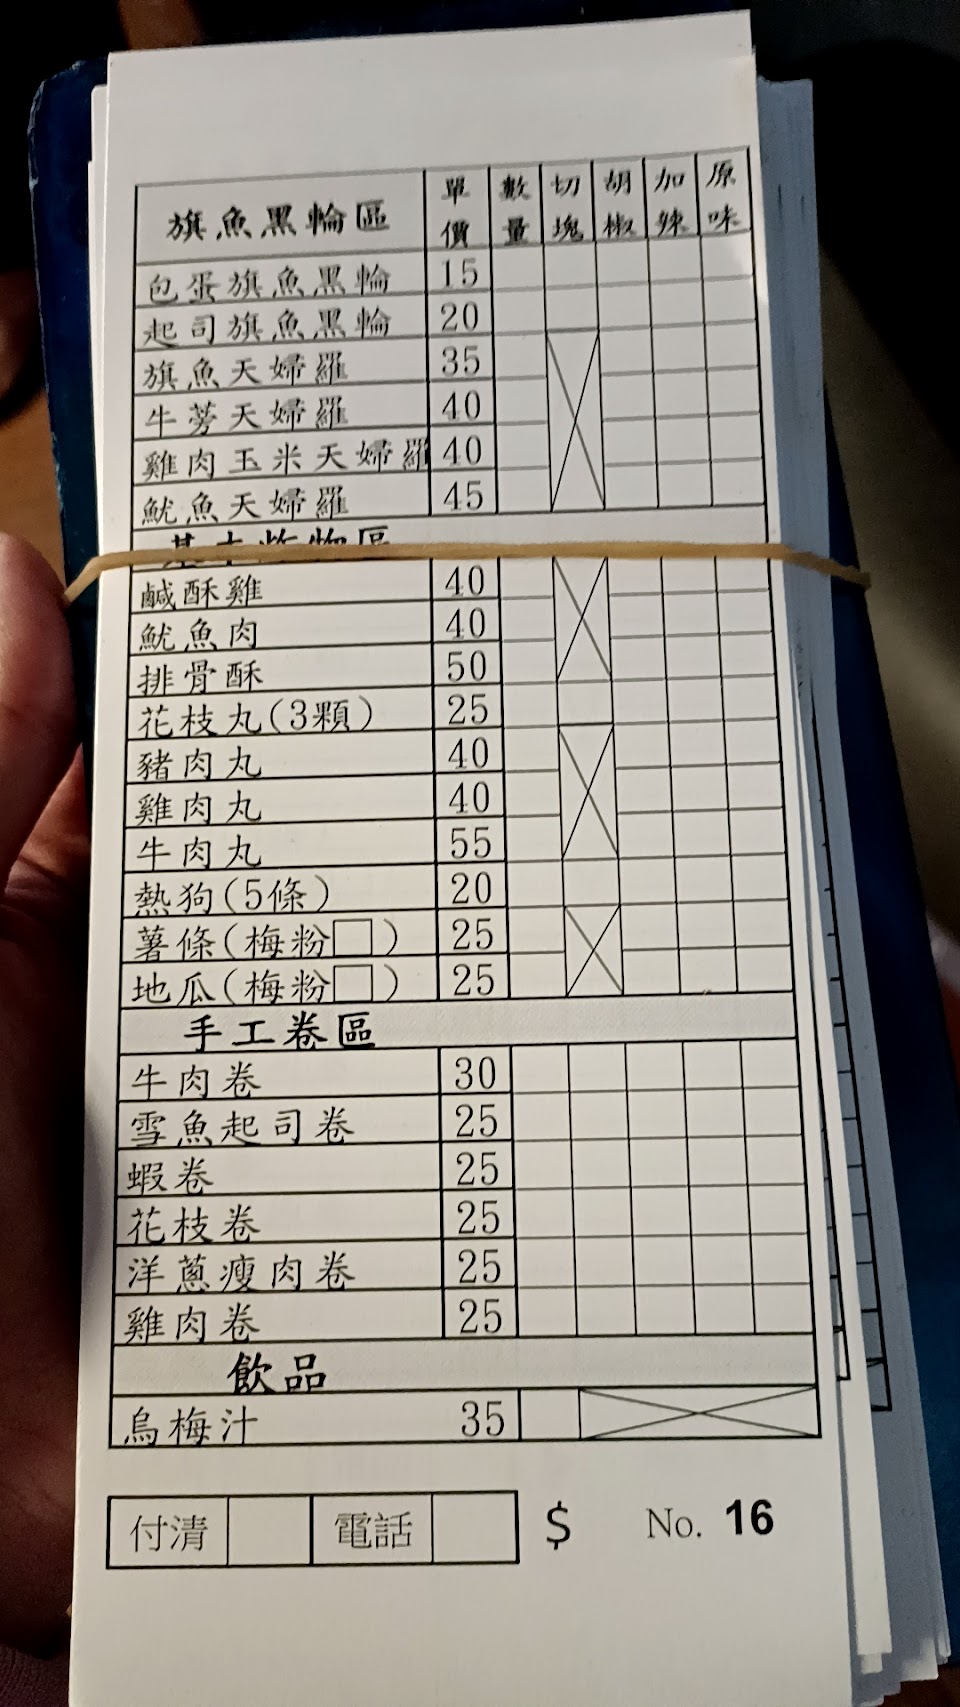 旗魚黑輪區 單價 數量 切塊 胡椒 加辣 原味
包蛋旗魚黑輪 15
起司旗魚黑輪 20
旗魚天婦羅 35
牛蒡天婦羅 40
雞肉玉米天婦羅 40
魷魚天婦羅 45
基本炸物區
鹹酥雞 40
魷魚肉 40
排骨酥 50
花枝丸(3顆) 25
豬肉丸 40
雞肉丸 40
牛肉丸 55
熱狗(5條) 20
薯條(梅粉□) 25
地瓜(梅粉□) 25
手工卷區
牛肉卷 30
雪魚起司卷 25
蝦卷 25
花枝卷 25
洋蔥瘦肉卷 25
雞肉卷 25
飲品
烏梅汁 35
付清 電話 $ No. 16